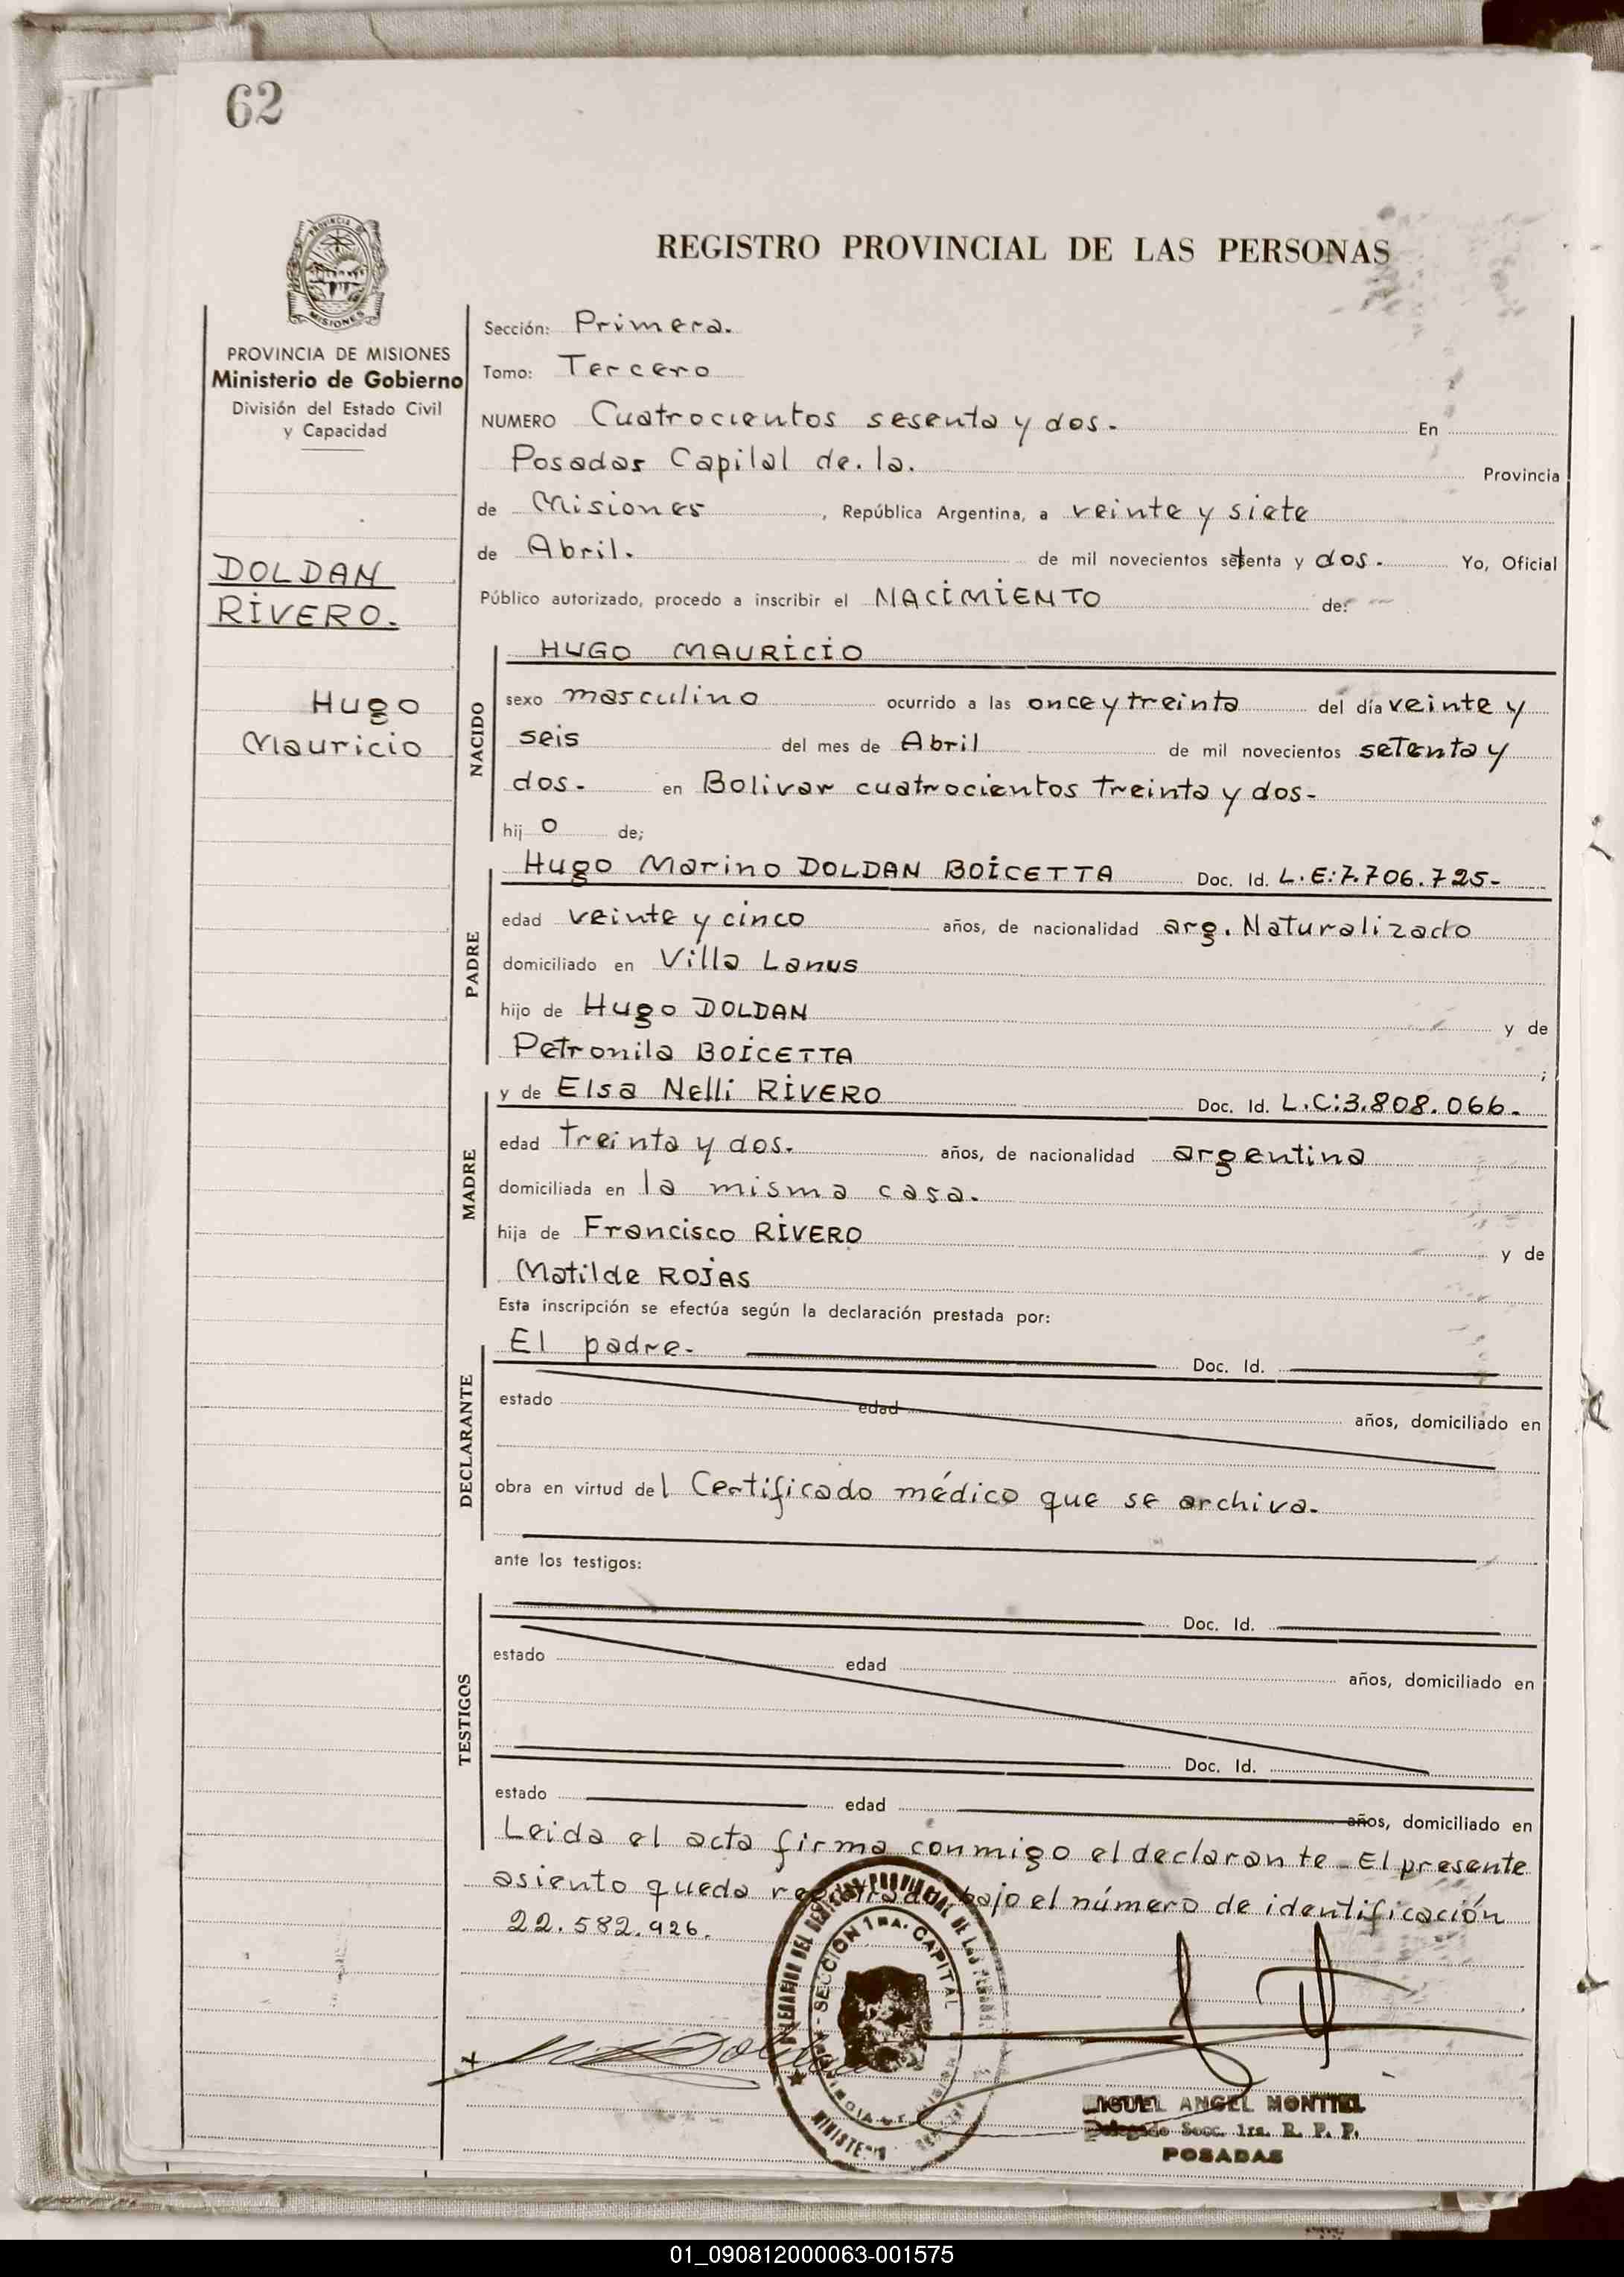 62
PROVINCIA DE
MISIONES
REGISTRO PROVINCIAL DE LAS PERSONAS
PROVINCIA DE MISIONES
Ministerio de Gobierno
División del Estado Civil
y Capacidad
DOLDAN
RIVERO.
Hugo
Mauricio
Sección: Primera.
Tomo: Tercero
NUMERO Cuatrocientos sesenta y dos. En
Posadas Capital de.la. Provincia
de Misiones, República Argentina, a veinte y siete
de Abril. de mil novecientos setenta y dos. Yo, Oficial
Público autorizado, procedo a inscribir el NACIMIENTO de:
NACIDO
HUGO MAURICIO
sexo masculino ocurrido a las once y treinta del día veinte y
seis del mes de Abril de mil novecientos setenta y
dos. en Bolivar cuatrocientos treinta y dos-
hijo de;
PADRE
Hugo Marino DOLDAN BOICETTA Doc. Id. L.E:7.706.725-
edad veinte y cinco años, de nacionalidad arg. Naturalizado
domiciliado en Villa Lanus
hijo de Hugo DOLDAN y de
Petronila BOICETTA ;
MADRE
y de Elsa Nelli RIVERO Doc. Id. L.C:3.808.066-
edad treinta y dos. años, de nacionalidad argentina
domiciliada en la misma casa.
hija de Francisco RIVERO y de
Matilde ROJAS
Esta inscripción se efectúa según la declaración prestada por:
DECLARANTE
El padre. Doc. Id.
estado edad años, domiciliado en
obra en virtud del Certificado médico que se archiva.
ante los testigos:
TESTIGOS
Doc. Id.
estado edad años, domiciliado en
Doc. Id.
estado edad años, domiciliado en
Leida el acta firma conmigo el declarante - El presente
asiento queda registrado bajo el número de identificación
22.582.926.
SECCION 1RA. CAPITAL
MIGUEL ANGEL MONTIEL
Delegado Secc. 1ra. R. P. P.
POSADAS
01_090812000063-001575